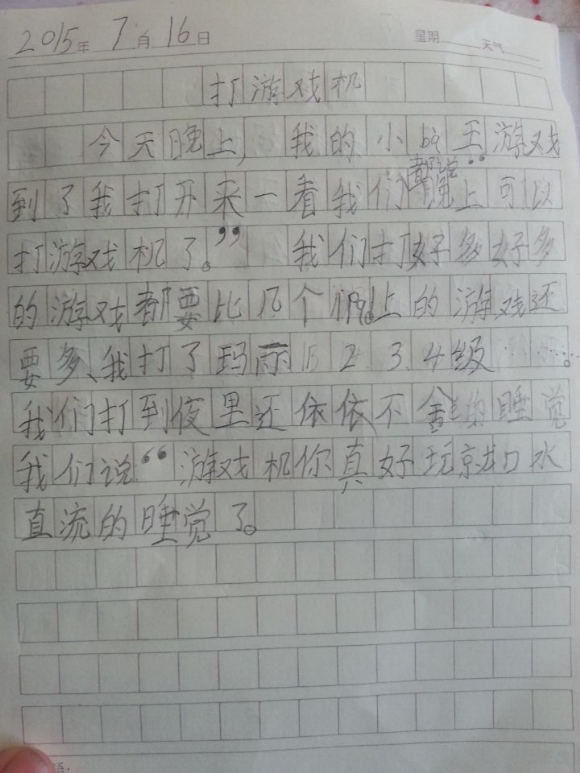 2015年7月16日 星期 天气
打游戏机
今天晚上,我的小战王游戏
到了我打开来一看我们都说“上可以
打游戏机了。”我们打好多好多
的游戏都要比几个 上的游戏还
要多、我打了玛丽 1、2、3、4级……。
我们打到夜里还依依不舍 睡觉
我们说“游戏机你真好玩 口水
直流的睡觉了。